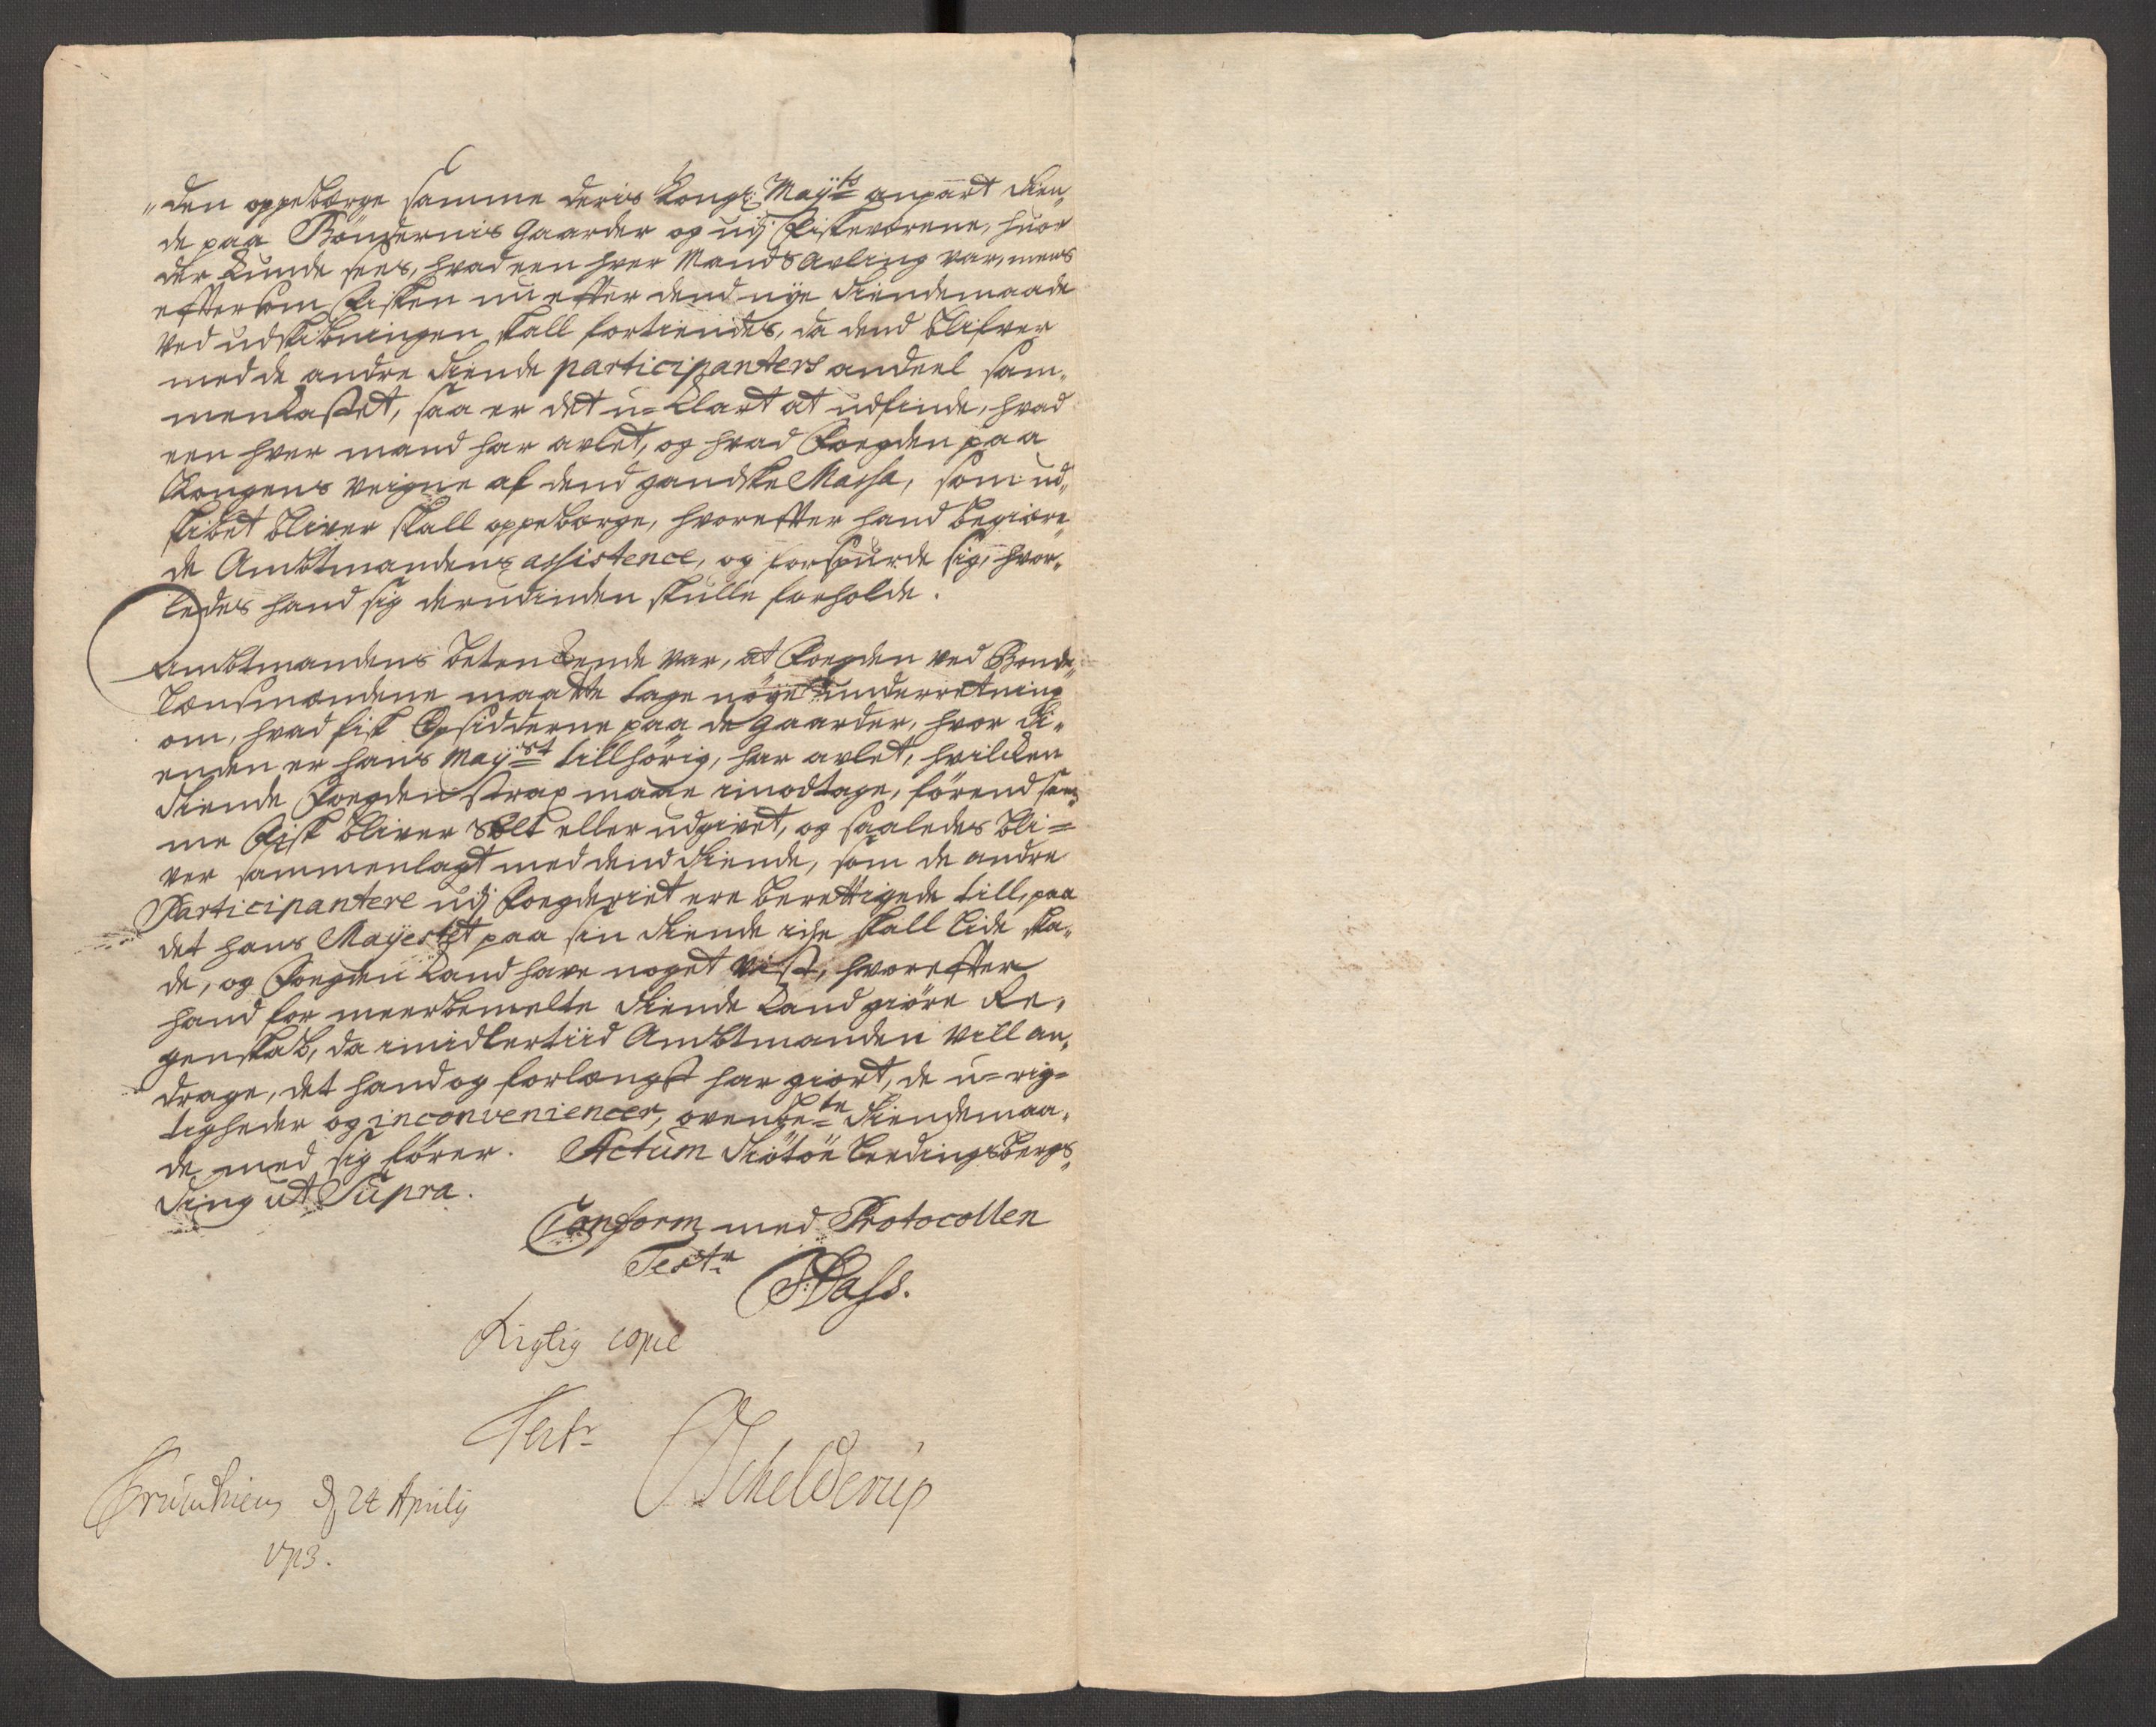 "den oppebærge samme deris Kongl: Mayts anpart Tien„
de paa Böndernis Gaarder og udj Fiskeværene, huor
der kunde sees, hvad een hver Mands avling var, mens
eftersom Fisken nu efter dend nÿe Tiendemaade
ved udskibningen skall fortiendes, da dend blifver
med de andre Tiende participanters andeel sam„
menkastet, saa er det u-klart at udfinde, hvad
een hver mand har avlet, og hvad Fogden paa
Kongens veigne af dend gandske Massa, som ud„
skibet bliver skall oppebærge, hvorefter hand begiære„
de Ambtmandens assistence, og forspurde sig, hvor„
ledes hand sig derudinden skulle forholde.
Ambtmandens betenkende var, at Fogden ved Bonde„
Lensmændene maatte tage nöÿe underretning
om, hvad fisk Opsidderne paa de gaarder, hvor Ti„
enden er hans Mayst tillhörig, har avlet, hvilcken
Tiende Fogden strax maae imodtage, förend sam„
me Fisk bliver solt eller udgivet, og saaledes bli=
ver sammenlagt med dend Tiende, som de andre
Participantere udj Fogderiet ere berettigede till, paa
det hans Mayestet paa sin Tiende icke skall lide ska„
de, og Fogden kand have noget vist, hvorefter
hand for meerbemelte Tiende kand giöre Re„
genskab, da imidlertiid Ambtmanden vill an„
drage, det hand og forlængst har giort, de u-rig=
tigheder og inconveniencer, ovenbete Tiendemaa„
de med sig förer. Actum Tiötöe Leedingsbergs„
Ting ut Supra.
Conform med Protocollen
Teste
PDass.
Rigtig copie
Test
Schelderup
Trundhiem d 24 Aprilij
1713.